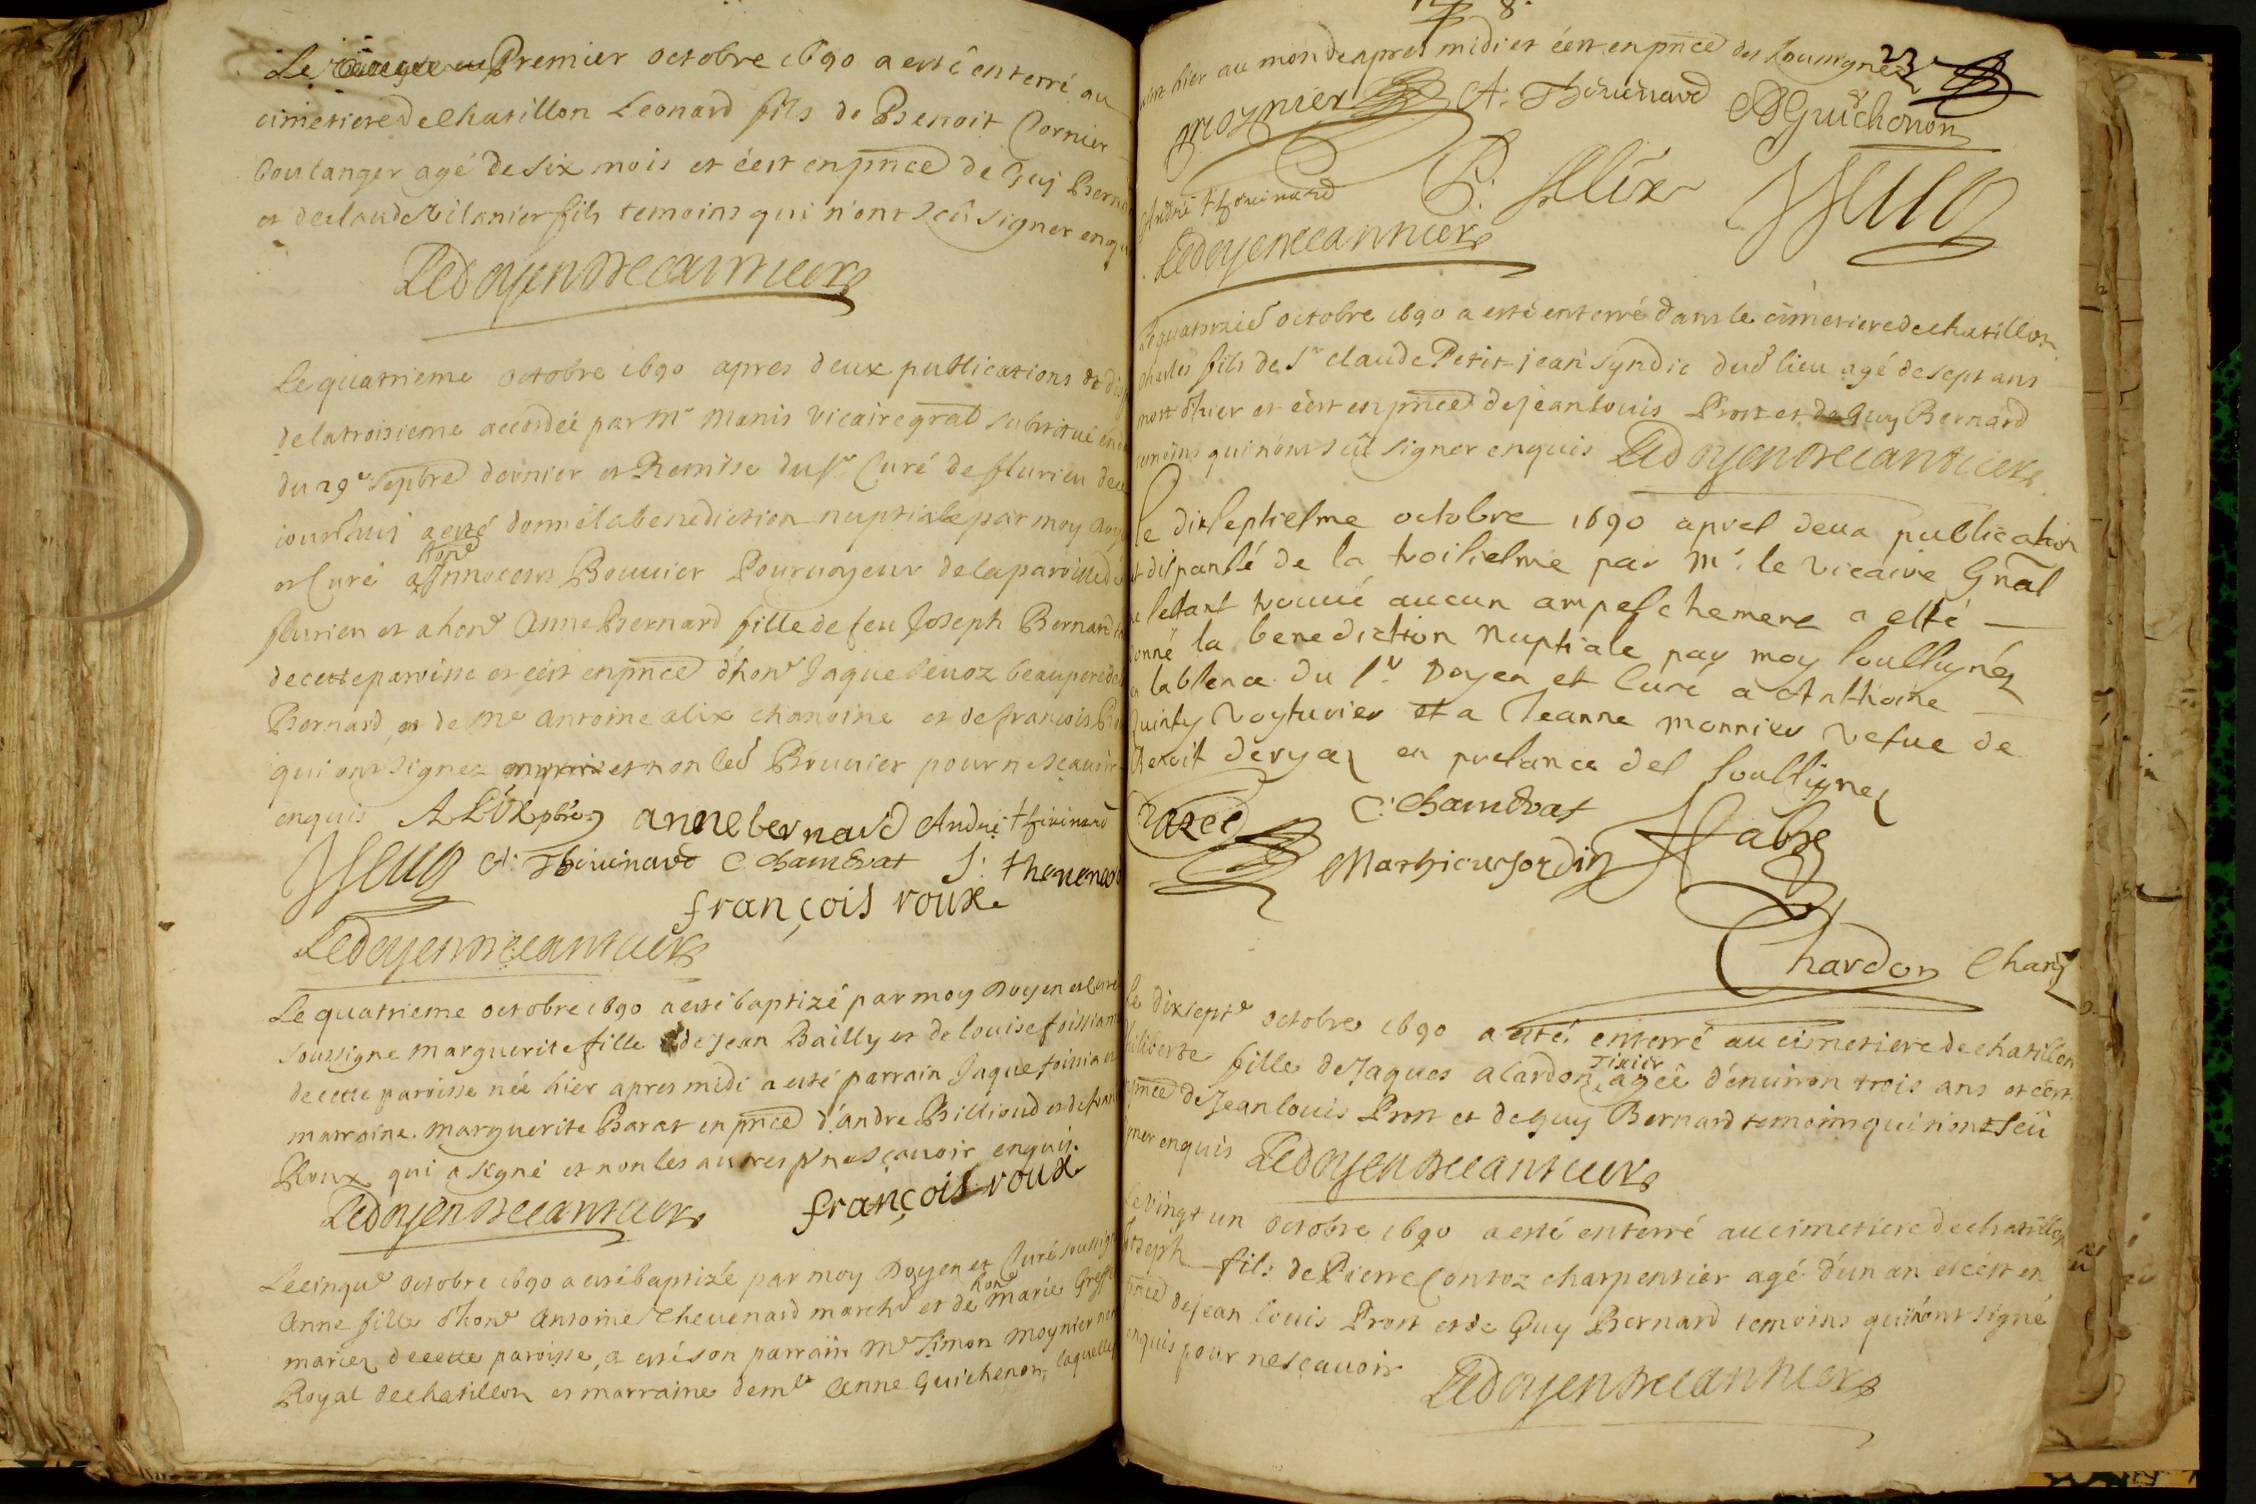 Le Premier octobre 1690 a esté enterré au
cimetiere de Chatillon Leonard fils de Benoit Cornier
boulanger agé de six mois et c'est en pnce de Guy Berna
et de claude Milanier fils temoins qui n'ont sceû signer enqu
Ledoyen
Le quatrieme octobre 1690 apres deux publications et disp
de la troisieme accordée par Mr Manis vicaire gral substitué
du 29e Sepbre dernier et Remise du Sr Curé de flurieu de ce
jourdhuy a esté donné la benediction nuptiale par moy Doy
et Curé a honê Innocent Bouvier Pourvoyeur de la paroisse de
flurieu et a honê Anne Bernard fille de feu Joseph Bernard
de cette paroisse et c'est en pnce d'honê Jaque Pevoz beaupere de
Bernard, et de Me Antoine alix chanoine et de francois
qui ont signez et non led Bouvier pour ne scavoir
enquis ALIX pbre anne bernard André thevenard
A. Thevenard C. Chambat J: thevenard
françois roux
Ledoyen
Le quatrieme octobre 1690 a esté baptizé par moy Doyen et curé
soussigne marguerite fille de Jean Bailly et de louise foissiat
de cette paroisse née hier apres midi a esté parrain Jaque foissiat et
marraine marguerite Barat en pnce d'andre Billioud et de fran
Roux qui a signé et non les autres pr ne sçavoir enquis
Ledoyen françois roux
Le cinque octobre 1690 a esté baptizée par moy Doyen et Curé soussigne
Anne fille d'honê Antoine Thevenard marchd et de honê marie
mariez de cette paroisse, a esté son parrain Me Simon Moynier
Royal de chatillon et marraine demlle Anne Guichenon, laquelle
8. 23
hier au monde apres midi et c'est en pnce des soussignez
Moynier A. Thevenard A Guichenon
André thevenard P. Allix
Ledoyen
Le quatorzie octobre 1690 a esté enterré dans le cimetiere de chatillon
charles fils de Sr claude Petit-jean syndic dud lieu agé de sept ans
mort d'hier et c'est en pnce de jean louis Prost et de Guy Bernard
temoins qui n'ont sceû signer enquis Ledoyen
Le dixseptiesme octobre 1690 apres deux publication
et dispansé de la troisiesme par Mr. le vicaire Gnal
ne sestant trouvé aucun ampeschement a esté
donné la benediction Nuptiale par moy soussignéz
en labsence du Sr Doyen et Curé a Anthoine
Quinty voyturier et a Jeanne monnier vefue de
Benoit deryez en presance des soussignez
C. Chambat
Mathieu Jordin fabre
Chardon Chane
Le dixsepte octobre 1690 a esté enterré au cimetiere de chatillon
philiberte fille de Jaques alardon Tixier agée d'environ trois ans et c'est
en pnce de Jean louis Prost et de guy Bernard temoins qui n'ont sceû
signer enquis Ledoyen
Le vingt un octobre 1690 a esté enterré au cimetiere de chatillon
Joseph fils de Pierre Contoz charpentier agé d'un an et c'est en
pnce de jean louis Prost et de Guy Bernard temoins qui n'ont signé
enquis pour ne scavoir
Ledoyen